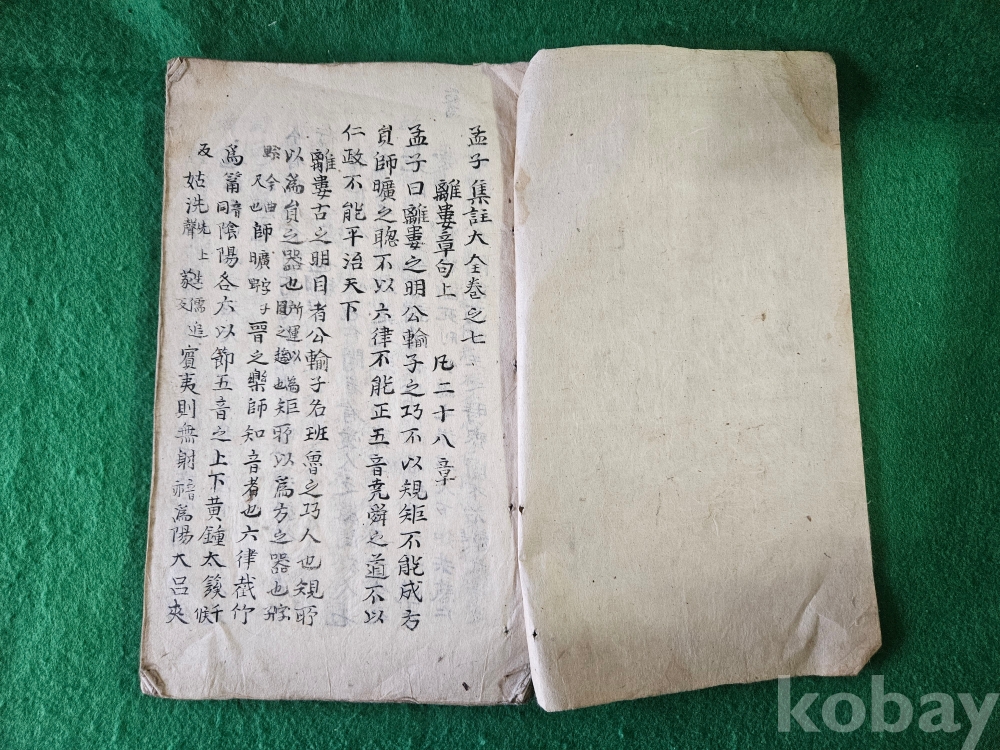 孟子集註大全卷之七
離婁章句上 凡二十八章
孟子曰離婁之明公輸子之巧不以規矩不能成方
員師曠之聰不以六律不能正五音堯舜之道不以
仁政不能平治天下
離婁古之明目者公輸子名班魯之巧人也規所
以爲員之器也所運以爲員之 也矩所以爲方之器也
師曠 晉之樂師知音者也六律截竹
爲筩音同陰陽各六以節五音之上下黃鍾太簇千候
反姑洗先上聲蕤儒追反賓夷則無射音 爲陽大呂夾
kobay